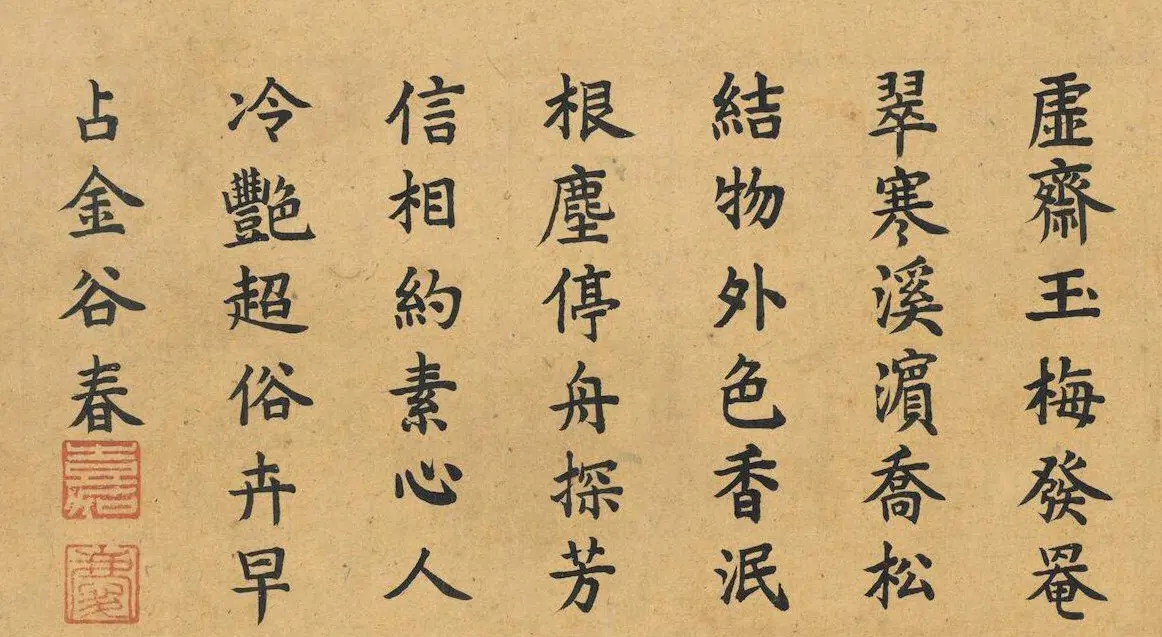 虛齋玉梅發罨
翠寒溪濵喬松
結物外色香泯
根塵停舟探芳
信相約素心人
冷艷超俗卉早
占金谷春